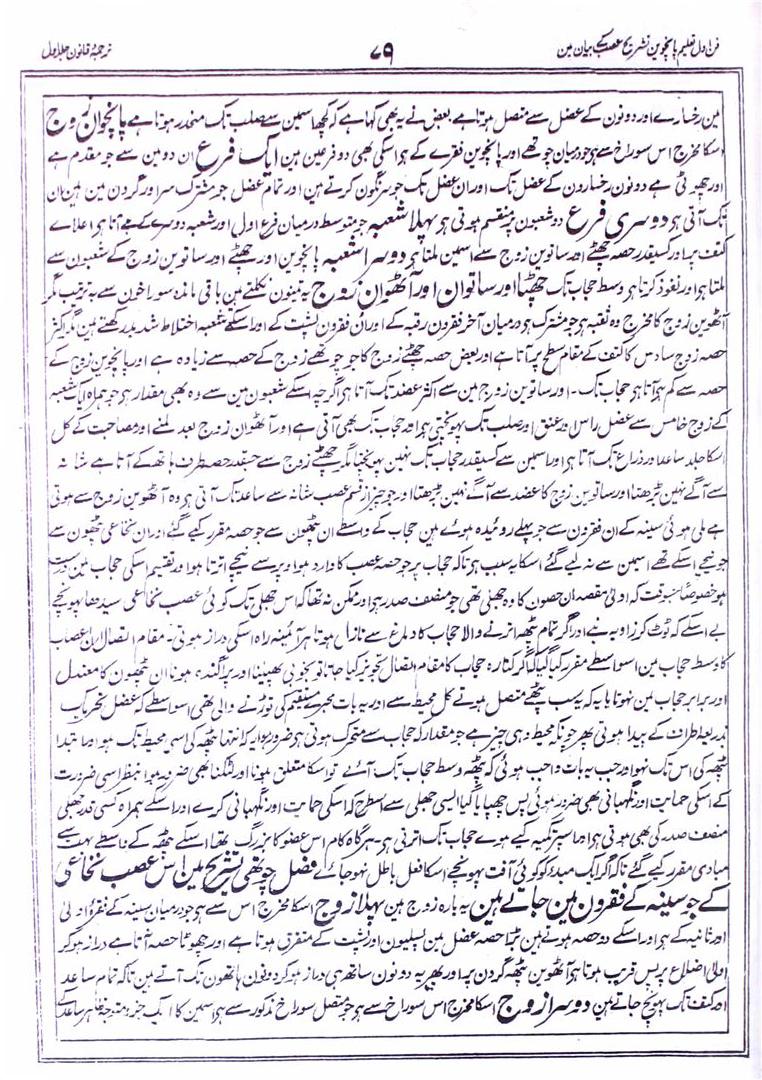 فن اول تعلیم پانچوین تشریح عصب کے بیان مین
۷۹
ترجمۂ قانون جلد اول
مین رخسارے اور دونون کے عضل سے متصل ہوتا ہے بعض نے یہ بھی کہا ہے کہ کچھ اسمین سے صلب تک منحدر ہوتا ہے پانچوان زوج
اسکا مخرج اس سوراخ سے ہی جو درمیان چوتھے اور پانچوین فقرے کے ہی اور اسکی بھی دو فرعین ہین ایک فرع ان دو مین سے جو مقدم ہے
اور چھوٹی ہے دونون رخسارون کے عضل تک اور ان عضل تک جو سرنگون کرتے ہین اور تمام عضل جو مشترک سر اور گردن مین ہین ان
تک آتی ہی دوسری فرع دو شعبون پر منقسم ہوتی ہی پہلا شعبہ جو متوسط درمیان فرع اول اور شعبہ دوسرے کے ہے آتا ہی اعلاے
کتف پر اور کسیقدر حصہ چھٹے اور ساتوین زوج سے اسمین ملتا ہی دوسرا شعبہ پانچوین اور چھٹے اور ساتوین زوج کے شعبون سے
ملتا ہی اور نفوذ کرتا ہی وسط حجاب تک چھٹا اور ساتوان اور آٹھوان زوج یہ تینون نکلتے ہین باقی ماندہ سوراخون سے بترتیب مگر
آٹھوین زوج کا مخرج وہ ثقبہ ہی جو مشترک ہی درمیان آخر فقرون رقبہ کے اور اول فقرون پشت کے اور اسکے شعبہ اختلاط شدید رکھتے ہین مگر اکثر
حصہ زوج سادس کا کتف کے مقام سطح پر آتا ہے اور بعض حصہ چھٹے زوج کا جو چوتھے زوج کے حصہ سے زیادہ ہے اور پانچوین زوج کے
حصہ سے کم ہی آتا ہی حجاب تک۔ اور ساتوین زوج مین سے اکثر عضد تک آتا ہی اگرچہ اسکے شعبون مین سے وہ بھی مقدار ہی جو ہمراہ ایک شعبہ
کے زوج خامس سے عضل راس اور عنق اور صلب تک پہونچتی ہی اور حجاب تک بھی آتی ہے اور آٹھوان زوج بعد ملنے اور مصاحبت کے کل
اسکا جلد ساعد اور ذراع تک آتا ہی اور اسمین سے کسیقدر حجاب تک نہین پہونچتا مگر چھٹے زوج سے جسقدر حصہ طرف ہاتھ کے آتا ہے شانہ
سے آگے نہین بڑھتا اور ساتوین زوج کا عضد سے آگے نہین بڑھتا اور جو چیز از قسم عصب شانہ سے ساعد تک آتی ہی وہ آٹھوین زوج سے ہوتی
ہے ملی ہوئی سینہ کے ان فقرون سے جو پہلے روئیدہ ہوے ہین حجاب کے واسطے ان پٹھون سے جو حصہ مقرر کیے گئے اور ان نخاعی پٹھون سے
جو نیچے اسکے تھے اسمین سے نہ لیے گئے اسکا یہ سبب ہی تاکہ حجاب پر جو حصہ عصب کا وارد ہو اوپر سے نیچے اترتا ہو اور تقسیم اسکی حجاب مین درست
ہو خصوصًا جبوقت کہ اولی مقصد ان حصون کا وہ جھلی تھی جو منصف صدر ہی اور ممکن نہ تھا کہ اس جھلی تک کوئی عصب نخاعی سیدھا پہونچے
بے اسکے کہ ٹوٹ کر زاویہ بنے اور اگر تمام پٹھہ اترنے والا حجاب کا دماغ سے نازل ہوتا ہر آئینہ راہ اسکی دراز ہوتی۔ مقام اتصال ان اعصاب
کا وسط حجاب مین اسواسطے مقرر کیا گیا کہ اگر کنارہ حجاب کا مقام اتصال تجویز کیا جاتا تو بخوبی پھیلنا اور پراگندہ ہونا ان پٹھون کا معتدل
اور برابر حجاب مین نہوتا یا یہ کہ سب پٹھے متصل ہوتے کل محیط سے اور یہ بات مجرے مستقیم کی توڑنے والی تھی اسواسطے کہ عضل تحریک
بذریعہ اطراف کے پیدا ہوتی پھر جو نکہ محیط وہی چیز ہے جو مقدار کہ حجاب سے متحرک ہوتی ہی ضرور ہوا یہ کہ انتہا پٹھہ کی اسی محیط تک ہو اور ابتدا
پٹھہ کی اس تک نہو اور جب یہ بات واجب ہوئی کہ پٹھہ وسط حجاب تک آئے تو اسکا معلق ہونا اور لٹکنا بھی ضرور ہوا بنظر اسی ضرورت
کے اسکی حمایت اور نگہبانی بھی ضرور ہوئی پس چھپایا گیا ایسی جھلی سے اسطرح کہ اسکی حمایت اور نگہبانی کرے اور اسکے ہمراہ کسی قدر جھلی
منصف صدر کی بھی ہوتی ہی اور اسپر تکیہ کیے ہوے حجاب تک اترتی ہے۔ ہرگاہ کام اس عضو کا بزرگ تھا اسکے پٹھہ کے واسطے بہت سے
مبادی مقرر کیے گئے تاکہ اگر ایک مبدء کو کوئی آفت پہونچے اسکا فعل باطل نہو جائے فصل چوتھی تشریح مین اس عصب نخاعی
کے جو سینہ کے فقرون مین جاتے ہین یہ بارہ زوج ہین پہلا زوج اسکا مخرج اس سے ہی جو درمیان سینہ کے فقرہ اولی
اور ثانیہ کے ہی اور اسکے دو حصہ ہوتے ہین بڑا حصہ عضل مین پسلیون اور پشت کے متفرق ہوتا ہے اور چھوٹا حصہ آتا ہے دراز ہو کر
اولی اضلاع پر پس قریب ہوتا ہی آٹھوین پٹھہ گردن پر اور پھر یہ دونون ساتھ ہی دراز ہو کر دونون ہاتھون تک آتے ہین تاکہ تمام ساعد
اور کف تک پہونچ جاتے ہین دوسرا زوج اسکا مخرج اس سوراخ سے ہی جو متصل سوراخ مذکور سے ہی اسمین کا ایک جزو متوجہ ظاہر ساعد کے